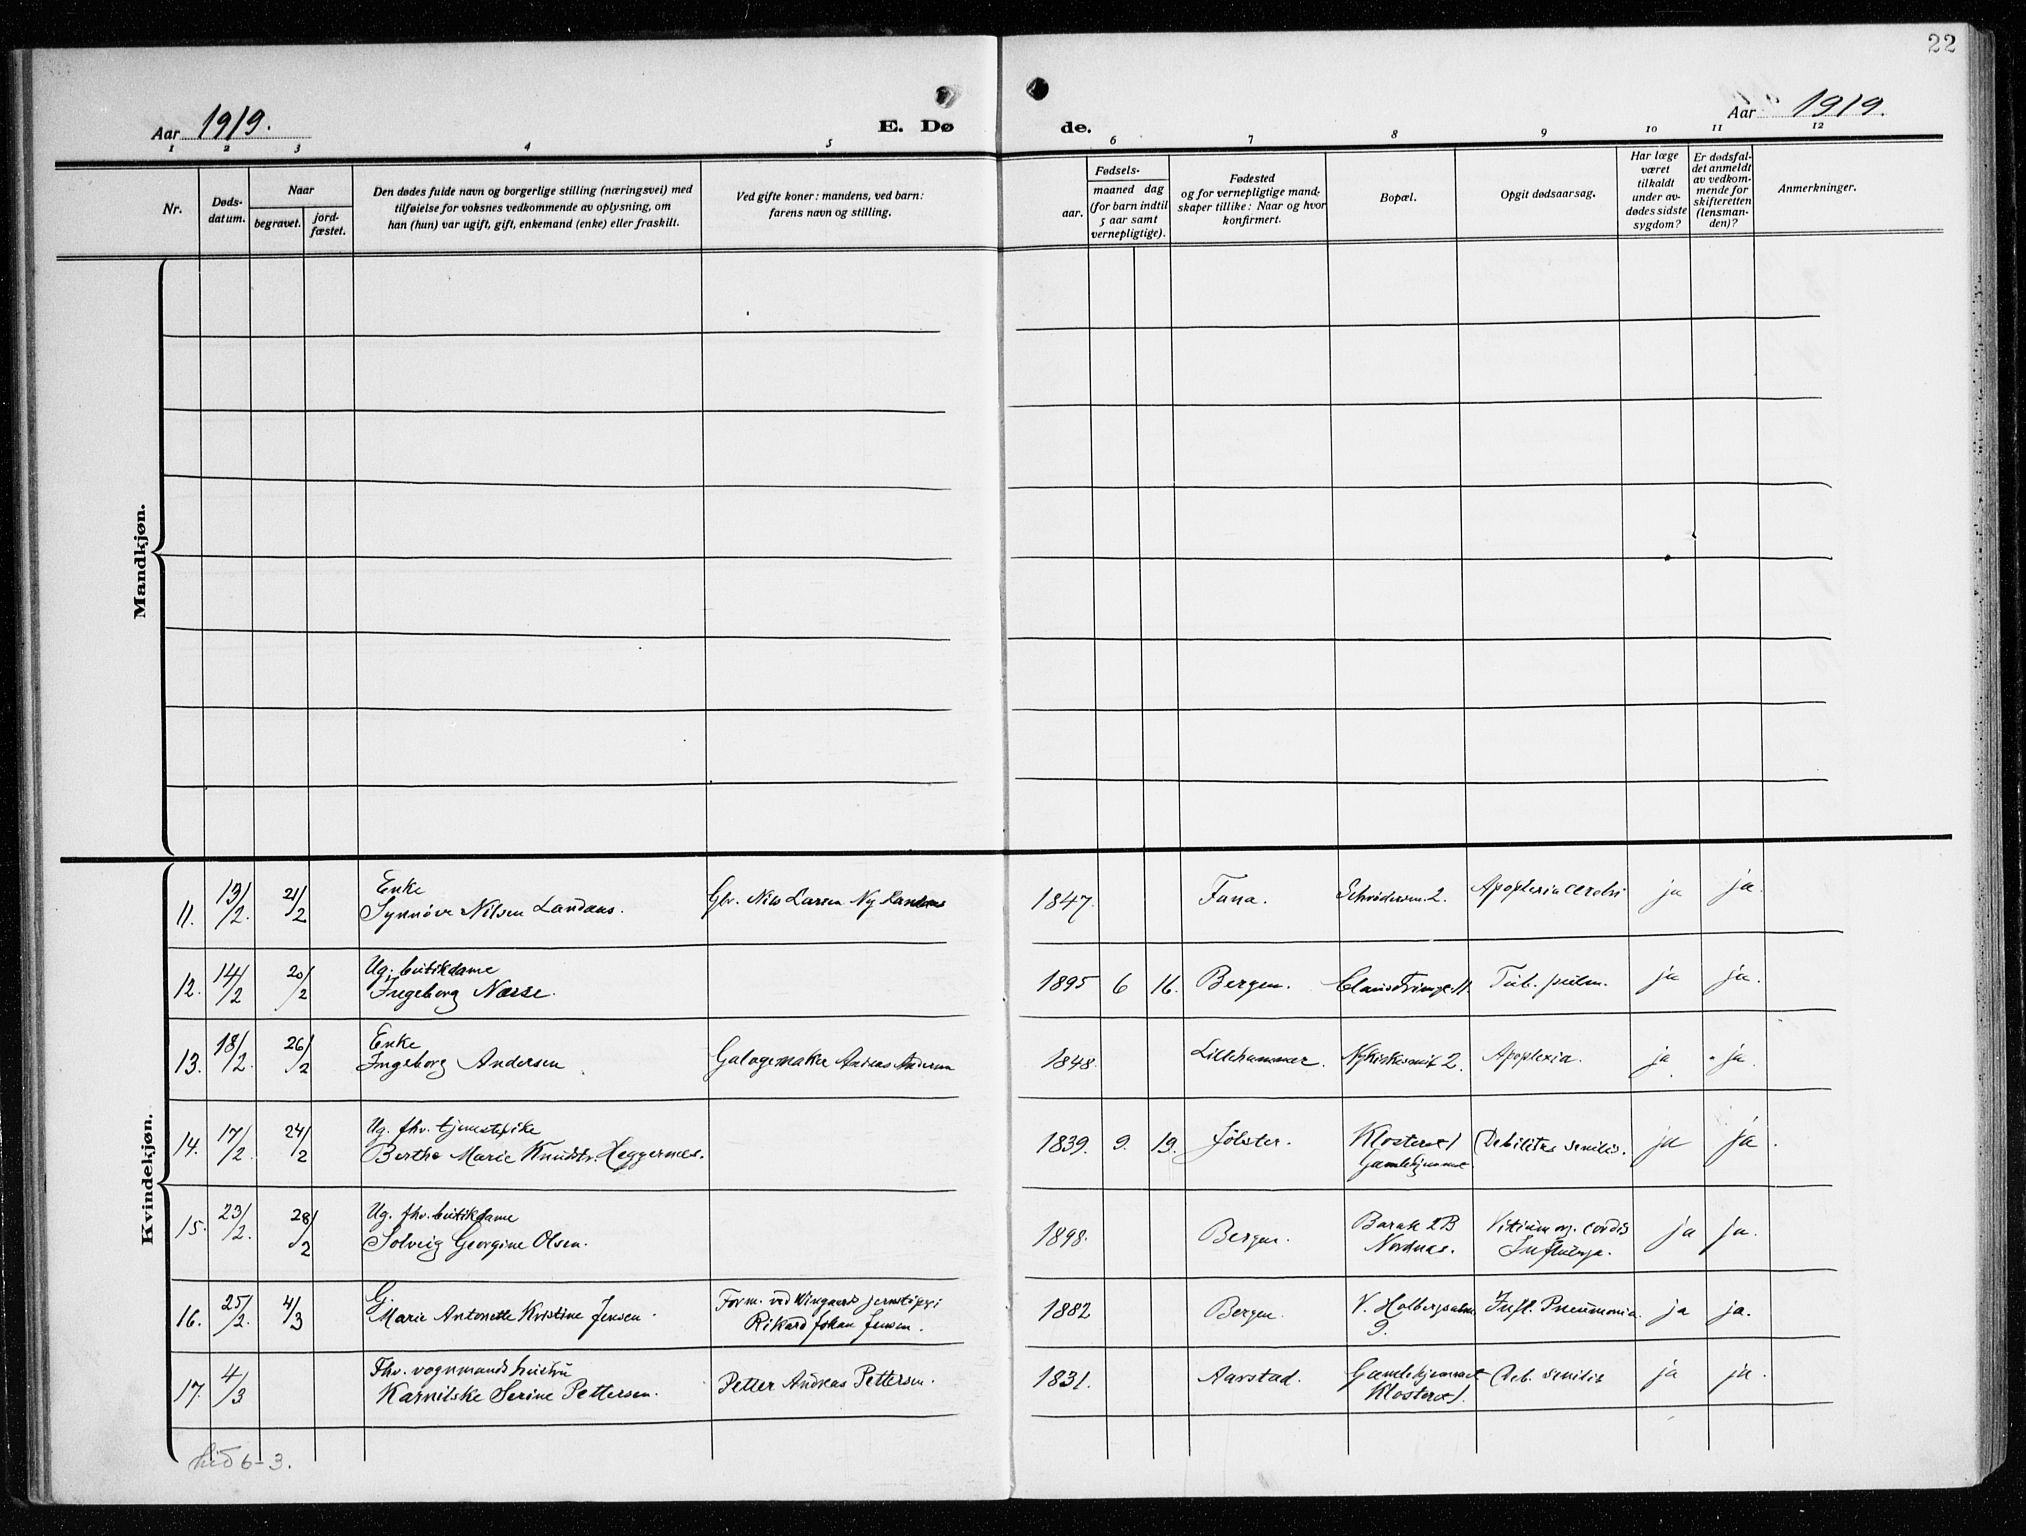 22
Aar 1919.
E. Dø
de.
Aar 1919.
1 2 3 4 5 6 7 8 9 10 11 12
Nr.
Døds-
datum.
Naar
begravet.
jord-
fæstet.
Den dødes fulde navn og borgerlige stilling (næringsvei) med
tilføielse for voksnes vedkommende av oplysning, om
han (hun) var ugift, gift, enkemand (enke) eller fraskilt.
Ved gifte koner: mandens, ved barn:
farens navn og stilling.
Fødsels-
aar.
maaned dag
(for barn indtil
5 aar samt
vernepligtige).
Fødested
og for vernepligtige mand-
skaper tillike: Naar og hvor
konfirmert.
Bopæl.
Opgit dødsaarsag.
Har læge
været
tilkaldt
under av-
dødes sidste
sygdom?
Er dødsfal-
det anmeldt
av vedkom-
mende for
skifteretten
(lensman-
den)?
Anmerkninger.
Mandkjøn.
Kvindekjøn.
11. 13/2. 21/2 Enke
Synnøve Nilsen Landaas. Gbr. Nils Larsen Ny Landaas 1847. Fana. 2. Apoplexia cerebri ja ja.
12. 14/2 20/2 Ug. butikdame
Ingeborg Næsse. 1895 6 16. Bergen. Tub. pulm. ja ja.
13. 18/2. 26/2 Enke
Ingeborg Andersen Galogemaker Andreas Andersen 1848. Lillehammer. 2. Apoplexia. ja ja.
14. 17/2. 24/2 Ug. fhv. tjenestepike
Berthe Marie Knudstr. Heggernes. 1839. 9. 19. Jølster. Klosteret 1
Gamlehjemmet Debilitas senilis. ja ja.
15. 23/2. 28/2 Ug. fhv. butikdame
Solveig Georgine Olsen. 1898. Bergen. Barak 2B
Nordnes. Vitium org. cordis
Influenza. ja ja.
16. 25/2. 4/3 G.
Marie Antonette Kristine Jensen. Form. ved Wingaards jernstøperi
Rikard Johan Jensen. 1882 Bergen. V. Holbergsalm.
9. Infl. Pneumonia. ja ja.
17. 4/3 Fhv. vognmands hustru
Serine Pettersen. Petter Andreas Pettersen. 1831. Aarstad. Gamlehjemmet
Klosteret 1. Deb. senilis ja ja.
hid 6-3.